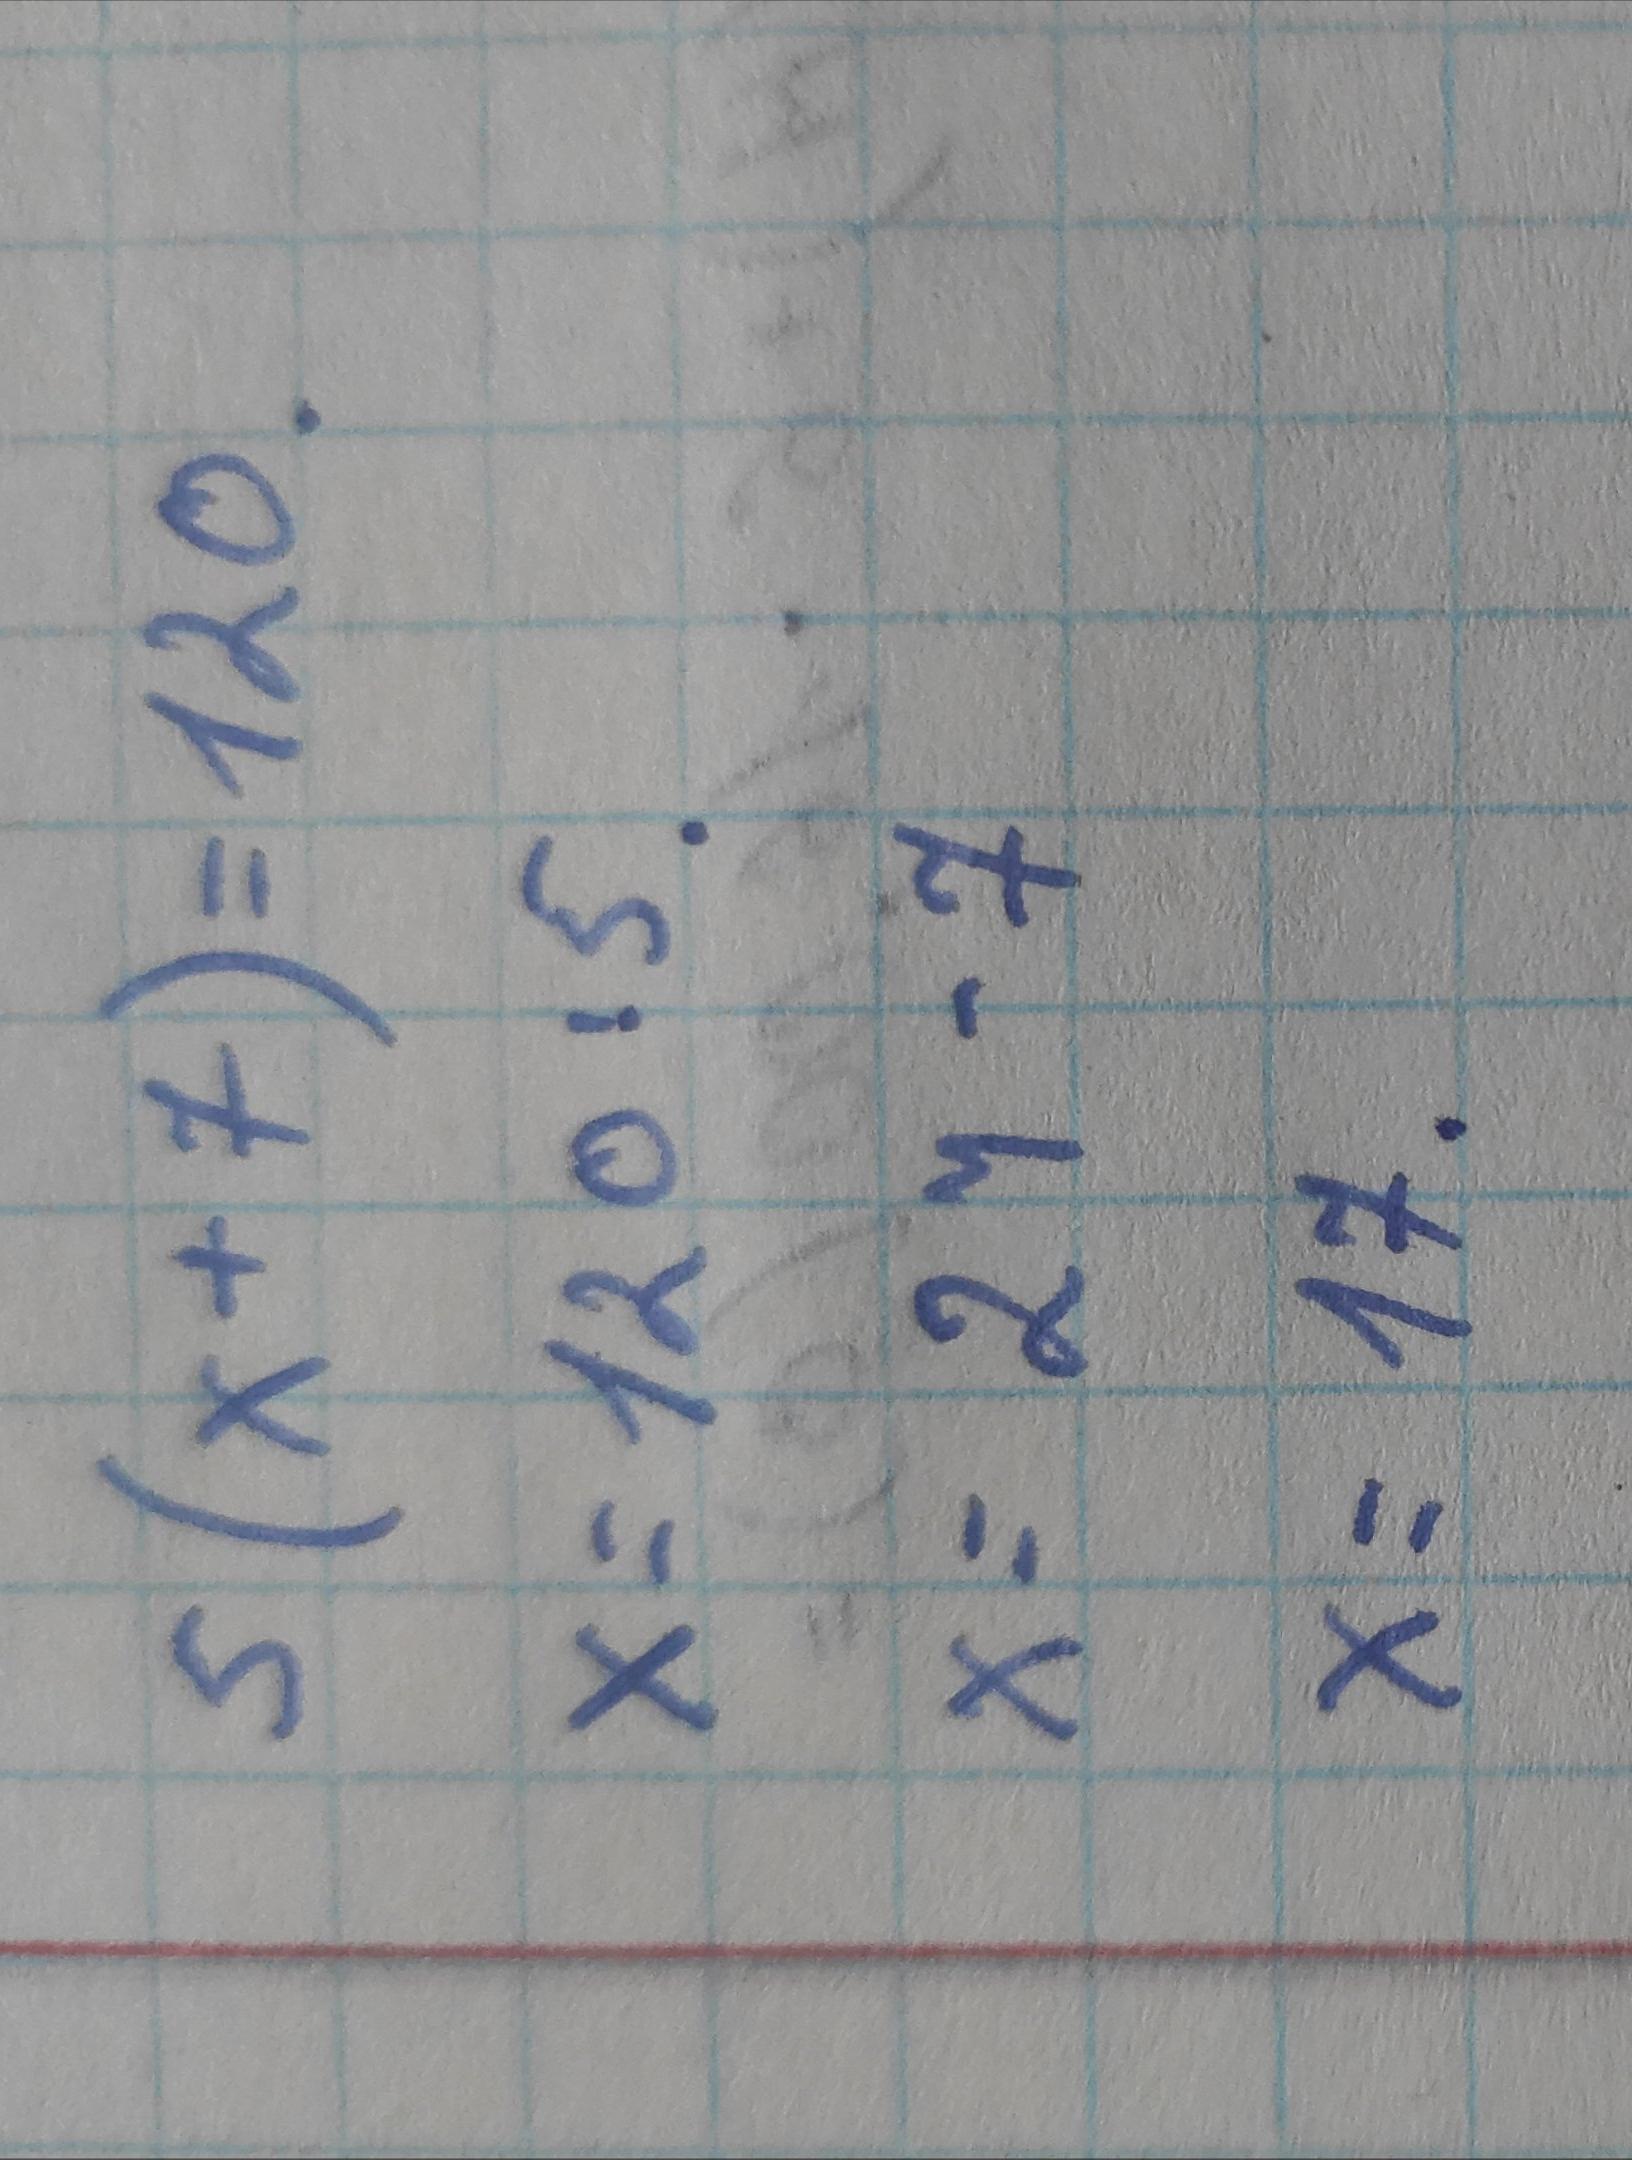 5(x+7)=120.
x=120:5.
x=24-7
x=17.